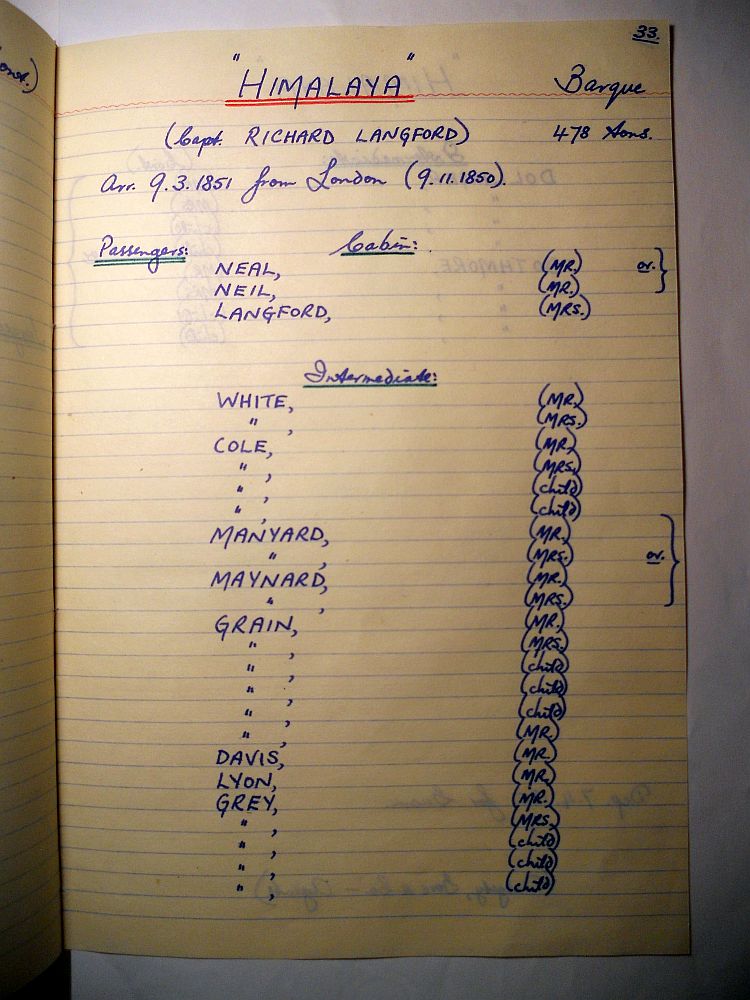 33.
"HIMALAYA" Barque
(Capt. RICHARD LANGFORD) 478 tons.
Arr. 9.3.1851 from London (9.11.1850).
Passengers: Cabin:
NEAL, (MR.) or. }
NEIL, (MR.)
LANGFORD, (MRS.)
Intermediate:
WHITE, (MR.)
" , (MRS.)
COLE, (MR.)
" , (MRS.)
" , (child)
" , (child)
MANYARD, (MR.)
" , (MRS.) or. }
MAYNARD, (MR.)
" , (MRS.)
GRAIN, (MR.)
" , (MRS.)
" , (child)
" , (child)
" , (child)
" , (MR.)
DAVIS, (MR.)
LYON, (MR.)
GREY, (MR.)
" , (MRS.)
" , (child)
" , (child)
" , (child)